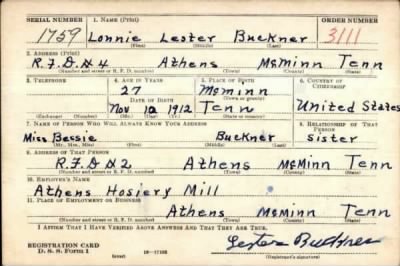 SERIAL NUMBER 1. NAME (Print) ORDER NUMBER
1759 Lonnie Lester Buckner 3111
(First) (Middle) (Last)
2. ADDRESS (Print)
R.F.D #4 Athens McMinn Tenn
(Number and street or R. F. D. number) (Town) (County) (State)
3. TELEPHONE 4. AGE IN YEARS 5. PLACE OF BIRTH 6. COUNTRY OF CITIZENSHIP
27 McMinn
DATE OF BIRTH (Town or county)
Nov 12 1912 Tenn United States
(Mo.) (Day) (Yr.) (State or country)
7. NAME OF PERSON WHO WILL ALWAYS KNOW YOUR ADDRESS 8. RELATIONSHIP OF THAT PERSON
Miss Bessie Buckner sister
(Mr., Mrs., Miss) (First) (Middle) (Last)
9. ADDRESS OF THAT PERSON
R.F.D #2 Athens McMinn Tenn
(Number and street or R. F. D. number) (Town) (County) (State)
10. EMPLOYER'S NAME
Athens Hosiery Mill
11. PLACE OF EMPLOYMENT OR BUSINESS
Athens McMinn Tenn
(Number and street or R. F. D. number) (Town) (County) (State)
I AFFIRM THAT I HAVE VERIFIED ABOVE ANSWERS AND THAT THEY ARE TRUE.
REGISTRATION CARD Lester Buckner
D. S. S. Form 1 (Registrant's signature)